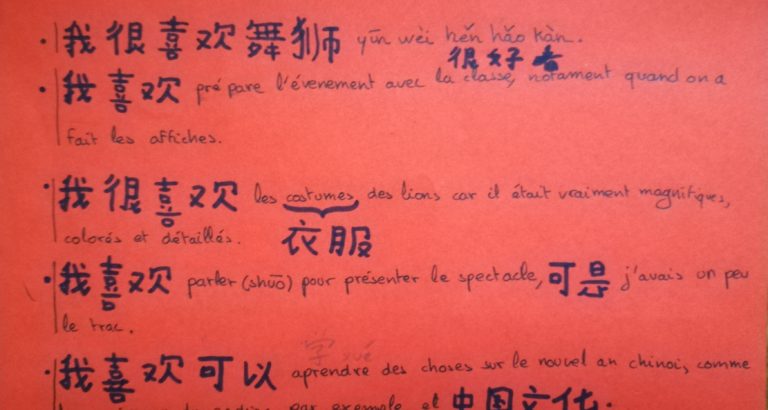 · 我很喜欢舞狮 yīn wèi hěn hǎo kàn.
很好看
· 我喜欢 prépare l'évenement avec la classe, notament quand on a
fait les affiches.
· 我很喜欢 les costumes des lions car il était vraiment magnifiques,
colorés et détaillés. 衣服
· 我喜欢 parler (shuō) pour présenter le spectacle, 可是 j'avais un peu
le trac.
学 xué
· 我喜欢可以 aprendre des choses sur le nouvel an chinois, comme
par exemple et 中国文化.